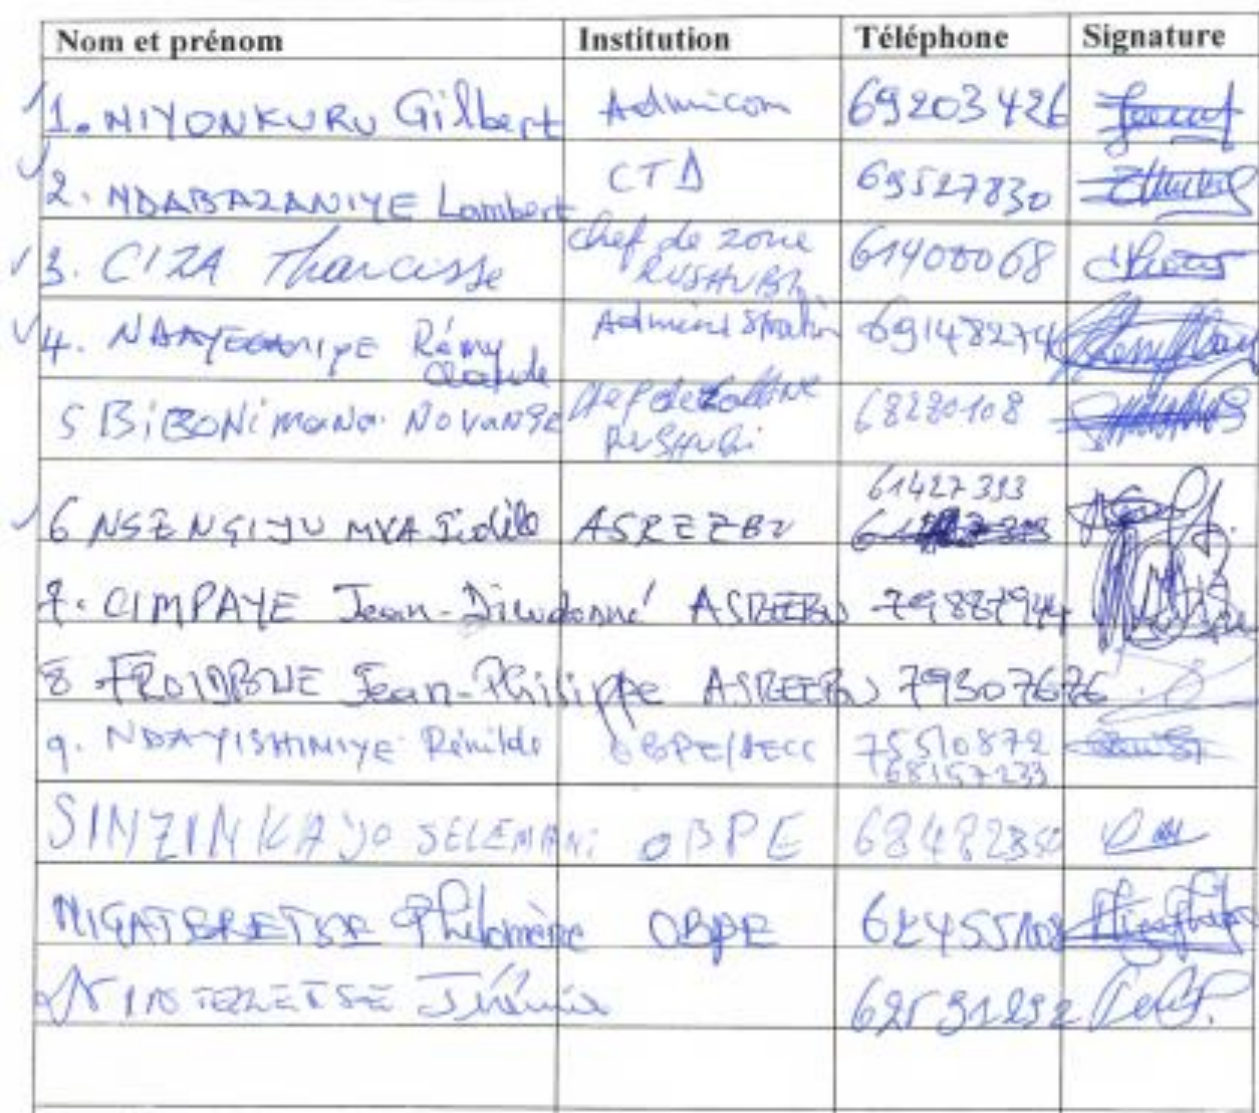 Nom et prénom Institution Téléphone Signature
1. NIYONKURU Gilbert Admicom 69203426
2. NDABAZANIYE Lambert CTD 69527830
3. CIZA Tharcisse chef de zone RUSHUBI 61400068
4. Rémy Claude Administratif 69148274
5 BiBONimana NOVANSE chef de colline RUSHUBi 68280108
6 NSENGIYUMVA Fidèle ASREEBU 61427393
7. CIMPAYE Jean-Dieudonné ASREEBU 79887944
8 FROIDBUE Jean-Philippe ASREEBU 79307676
9. NDAYISHIMIYE Rénilde OBPE/DECC 75510872
68157233
SINZINKAYO SELEMANI OBPE 68482350
Philomène OBPE 62455108
Jérémie 62591292